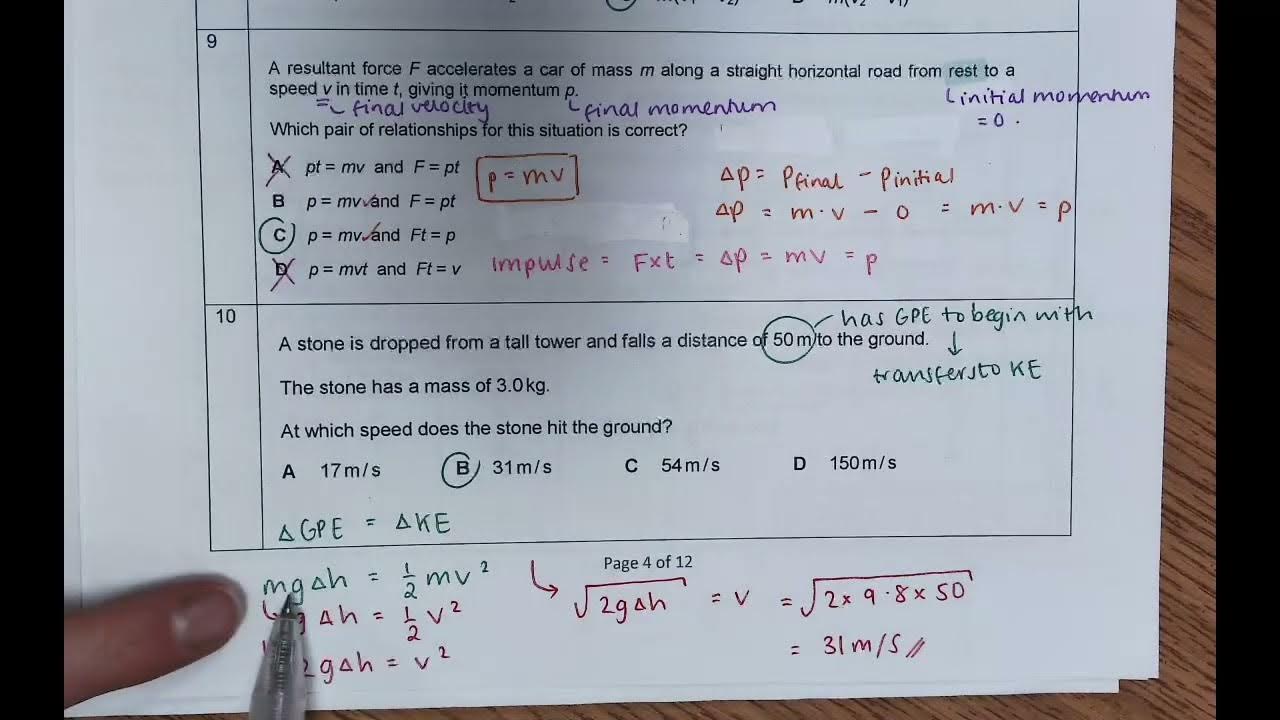 9
A resultant force F accelerates a car of mass m along a straight horizontal road from rest to a
speed v in time t, giving it momentum p.
= final velocity
final momentum
initial momentum
= 0.
Which pair of relationships for this situation is correct?
A pt = mv and F = pt
p = mv
Δp = Pfinal - Pinitial
B p = mv ✓ and F = pt
Δp = m·v - 0 = m·v = p
C p = mv ✓ and Ft = p
D p = mvt and Ft = v
Impulse = F×t = Δp = mv = p
10
has GPE to begin with
A stone is dropped from a tall tower and falls a distance of 50 m to the ground.
↓
transfers to KE
The stone has a mass of 3.0 kg.
At which speed does the stone hit the ground?
A 17 m/s B 31 m/s C 54 m/s D 150 m/s
ΔGPE = ΔKE
Page 4 of 12
mgΔh = 1/2 mv²
√2gΔh = v = √2×9.8×50
gΔh = 1/2 v²
= 31 m/s //
2gΔh = v²